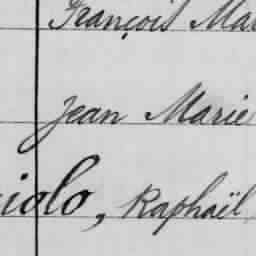 François Mar
Jean Marie
iolo, Raphaël